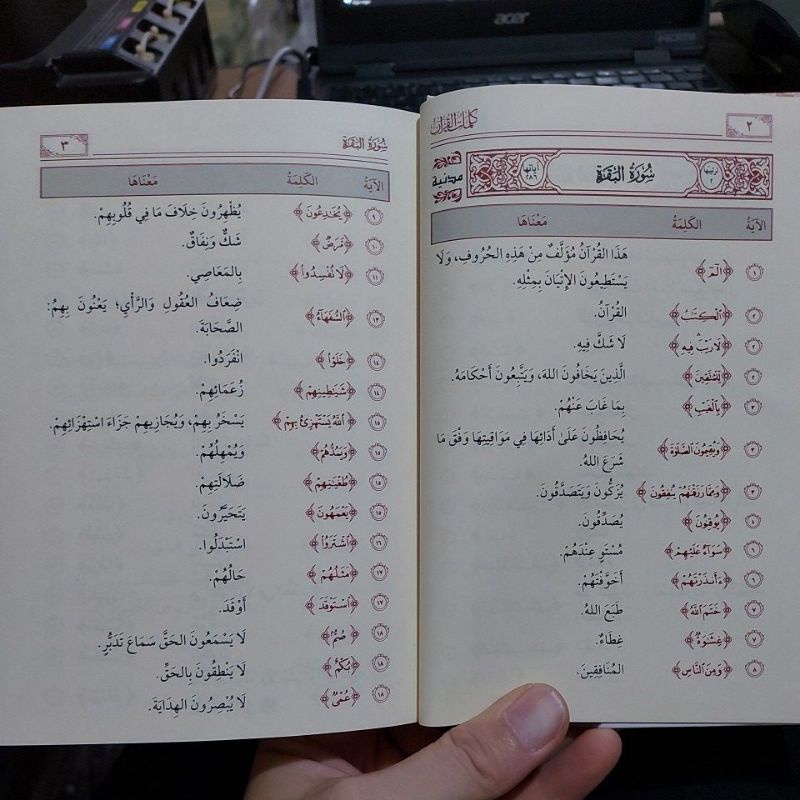 acer
HDMI
كلمات القرآن
٢
ترتيبها ٢
سُورَةُ البَقَرَةِ
آياتها ٢٨٦
مدنية
الآيَةُ الكَلِمَةُ مَعْنَاهَا
١ ﴿الٓمٓ﴾ هَذَا القُرْآنُ مُؤَلَّفٌ مِنْ هَذِهِ الحُرُوفِ، وَلَا
يَسْتَطِيعُونَ الإِتْيَانَ بِمِثْلِهِ.
٢ ﴿الْكِتَٰبُ﴾ القُرْآنُ.
٢ ﴿لَا رَيْبَ ۛ فِيهِ﴾ لَا شَكَّ فِيهِ.
٢ ﴿لِّلْمُتَّقِينَ﴾ الَّذِينَ يَخَافُونَ اللهَ، وَيَتَّبِعُونَ أَحْكَامَهُ.
٣ ﴿بِالْغَيْبِ﴾ بِمَا غَابَ عَنْهُمْ.
٣ ﴿وَيُقِيمُونَ الصَّلَوٰةَ﴾ يُحَافِظُونَ عَلَىٰ أَدَائِهَا فِي مَوَاقِيتِهَا وَفْقَ مَا
شَرَعَ اللهُ.
٣ ﴿وَمِمَّا رَزَقْنَٰهُمْ يُنفِقُونَ﴾ يُزَكُّونَ وَيَتَصَدَّقُونَ.
٤ ﴿يُوقِنُونَ﴾ يُصَدِّقُونَ.
٦ ﴿سَوَآءٌ عَلَيْهِمْ﴾ مُسْتَوٍ عِنْدَهُمْ.
٦ ﴿ءَأَنذَرْتَهُمْ﴾ أَخَوَّفْتَهُمْ.
٧ ﴿خَتَمَ اللَّهُ﴾ طَبَعَ اللهُ.
٧ ﴿غِشَٰوَةٌ﴾ غِطَاءٌ.
٨ ﴿وَمِنَ النَّاسِ﴾ المُنَافِقِينَ.
سُورَةُ البَقَرَةِ
٣
الآيَةُ الكَلِمَةُ مَعْنَاهَا
٩ ﴿يُخَٰدِعُونَ﴾ يُظْهِرُونَ خِلَافَ مَا فِي قُلُوبِهِمْ.
١٠ ﴿مَّرَضٌ﴾ شَكٌّ وَنِفَاقٌ.
١١ ﴿لَا تُفْسِدُوا۟﴾ بِالمَعَاصِي.
١٣ ﴿السُّفَهَآءُ﴾ ضِعَافُ العُقُولِ وَالرَّأْيِ؛ يَعْنُونَ بِهِمُ:
الصَّحَابَةَ.
١٤ ﴿خَلَوْا۟﴾ انْفَرَدُوا.
١٤ ﴿شَيَٰطِينِهِمْ﴾ زُعَمَائِهِمْ.
١٥ ﴿اللَّهُ يَسْتَهْزِئُ بِهِمْ﴾ يَسْخَرُ بِهِمْ، وَيُجَازِيهِمْ جَزَاءَ اسْتِهْزَائِهِمْ.
١٥ ﴿وَيَمُدُّهُمْ﴾ وَيُمْهِلُهُمْ.
١٥ ﴿طُغْيَٰنِهِمْ﴾ ضَلَالَتِهِمْ.
١٥ ﴿يَعْمَهُونَ﴾ يَتَحَيَّرُونَ.
١٦ ﴿اشْتَرَوُا۟﴾ اسْتَبْدَلُوا.
١٧ ﴿مَثَلُهُمْ﴾ حَالُهُمْ.
١٧ ﴿اسْتَوْقَدَ﴾ أَوْقَدَ.
١٨ ﴿صُمٌّ﴾ لَا يَسْمَعُونَ الحَقَّ سَمَاعَ تَدَبُّرٍ.
١٨ ﴿بُكْمٌ﴾ لَا يَنْطِقُونَ بِالحَقِّ.
١٨ ﴿عُمْىٌ﴾ لَا يُبْصِرُونَ الهِدَايَةَ.